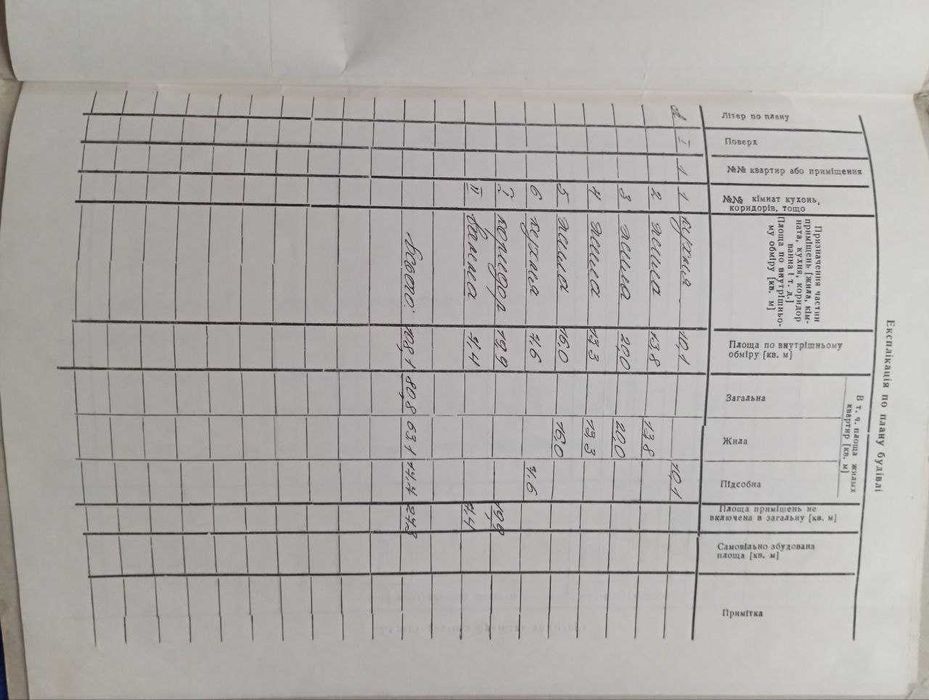 Експлікація по плану будівлі
Літер по плану
Поверх
№№ квартир або приміщення
№№ кімнат кухонь,
коридорів, тощо
Призначення частин
приміщень [жила, кім-
ната, кухня, коридор
ванна і т. д.]
Площа по внутрішньо-
му обміру [кв. м]
Площа по внутрішньому
обміру [кв. м]
В т. ч. площа жилых
квартир [кв. м]
Загальна
Жила
Підсобна
Площа приміщень не
включена в загальну [кв. м]
Самовільно збудована
площа [кв. м]
Примітка
А I 1 1 кухня 10,1 10,1
2 жила 13,8 13,8
3 жила 20,0 20,0
4 жила 13,3 13,3
5 жила 16,0 16,0
6 кухня 7.6 7.6
I коридор 19,9 19,9
II ванна 7.4 7.4
Всього: 108,1 80,8 63,1 17,7 27,3